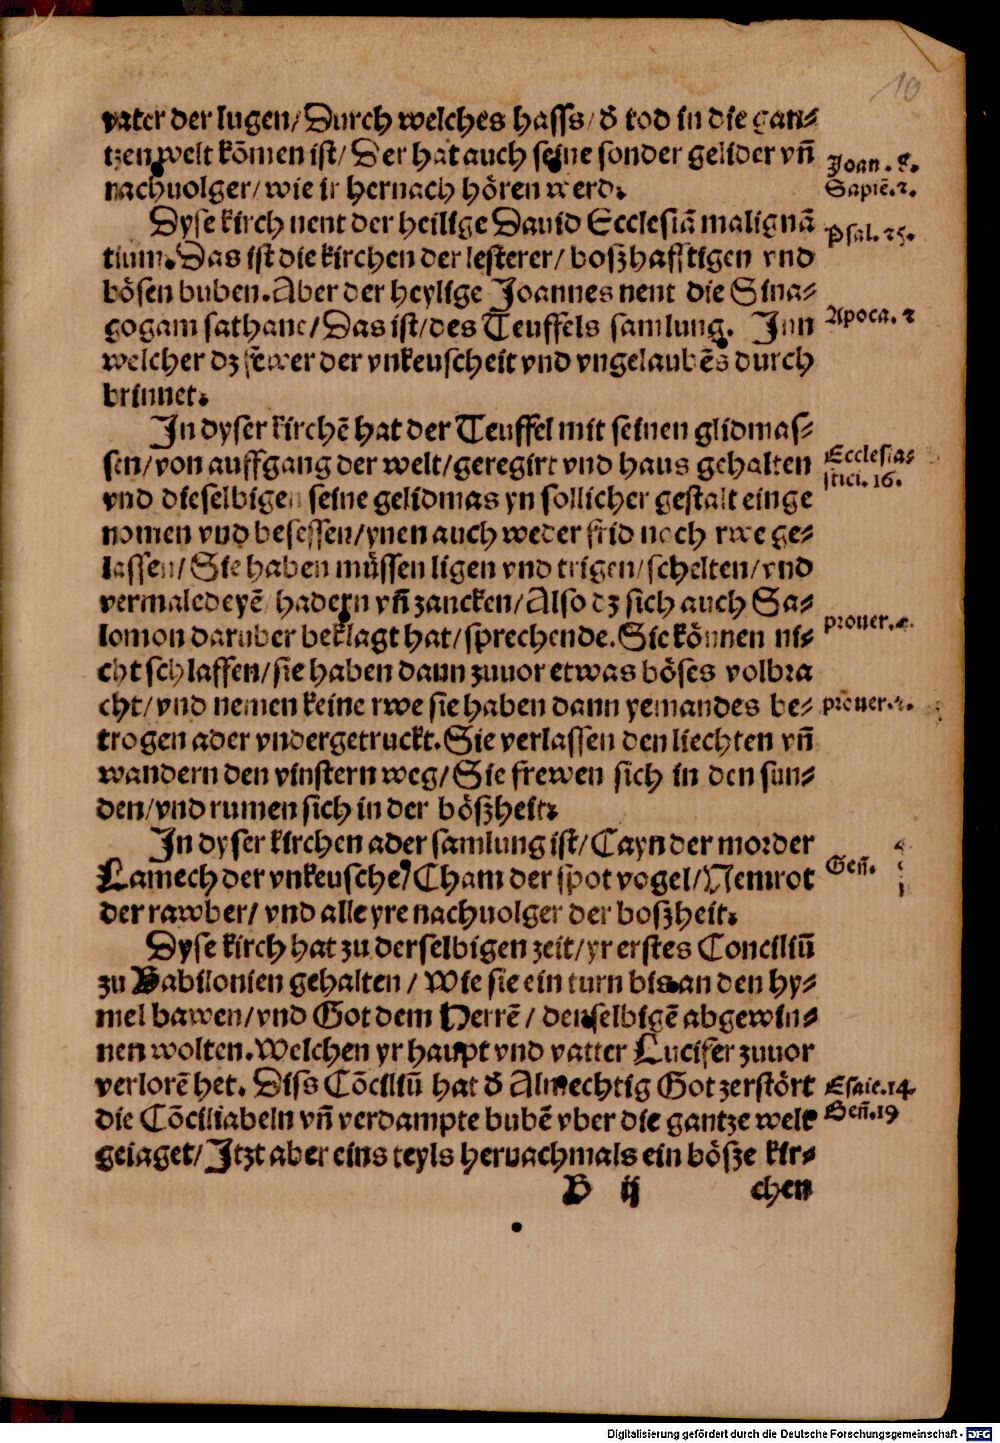 10
vater der lugen/ Durch welches hasss/ d̕ tod in die gan⸗
tzen welt kõmen ist/ Der hat auch seine sonder gelider vñ
Joan. 8.
nachuolger/ wie ir hernach hören werd.
Sapiẽ. 2.
Dyse kirch nent der heilige Dauid Ecclesiã malignã
Psal. 25.
tium. Das ist die kirchen der lesterer/ boßhafftigen vnd
bösen buben. Aber der heylige Joannes nent die Sina⸗
gogam sathane/ Das ist/ des Teuffels samlung. Inn
Apoca. 2
welcher dz fewer der vnkeuscheit vnd vngelaubẽs durch
brinnet.
In dyser kirchẽ hat der Teuffel mit seinen glidmas⸗
sen/ von auffgang der welt/ geregirt vnd haus gehalten
Ecclesia⸗
stici. 16.
vnd dieselbigen seine gelidmas yn sollicher gestalt einge
nomen vnd besessen/ ynen auch weder frid noch rwe ge⸗
lassen/ Sie haben müssen ligen vnd trigen/ schelten/ vnd
vermaledeyẽ/ hadern vñ zancken/ Also dz sich auch Sa⸗
lomon daruber beklagt hat/ sprechende. Sie können ni⸗
prouer. 4.
cht schlaffen/ sie haben dann zuuor etwas böses volbra
cht/ vnd nemen keine rwe sie haben dann yemandes be⸗
prouer. 2.
trogen ader vndergetruckt. Sie verlassen den liechten vñ
wandern den vinstern weg/ Sie frewen sich in den sun⸗
den/ vnd rumen sich in der bößheit.
In dyser kirchen ader samlung ist/ Cayn der morder
Lamech der vnkeusche/ Cham der spot vogel/ Nemrot
Geñ.
der rawber/ vnd alle yre nachuolger der boßheit.
Dyse kirch hat zu derselbigen zeit/ yr erstes Conciliũ
zu Babilonien gehalten/ Wie sie ein turn bis an den hy⸗
mel bawen/ vnd Got dem Herrẽ/ denselbigẽ abgewin⸗
nen wolten. Welchen yr haupt vnd vatter Lucifer zuuor
verlorẽ het. Diss Cõciliũ hat d̕ Almechtig Got zerstört
Esaie. 14.
die Cõciliabeln vñ verdampte bubẽ vber die gantze welt
Geñ. 19
geiaget/ Itzt aber eins teyls hernachmals ein böße kir⸗
B ij chen
Digitalisierung gefördert durch die Deutsche Forschungsgemeinschaft - DFG